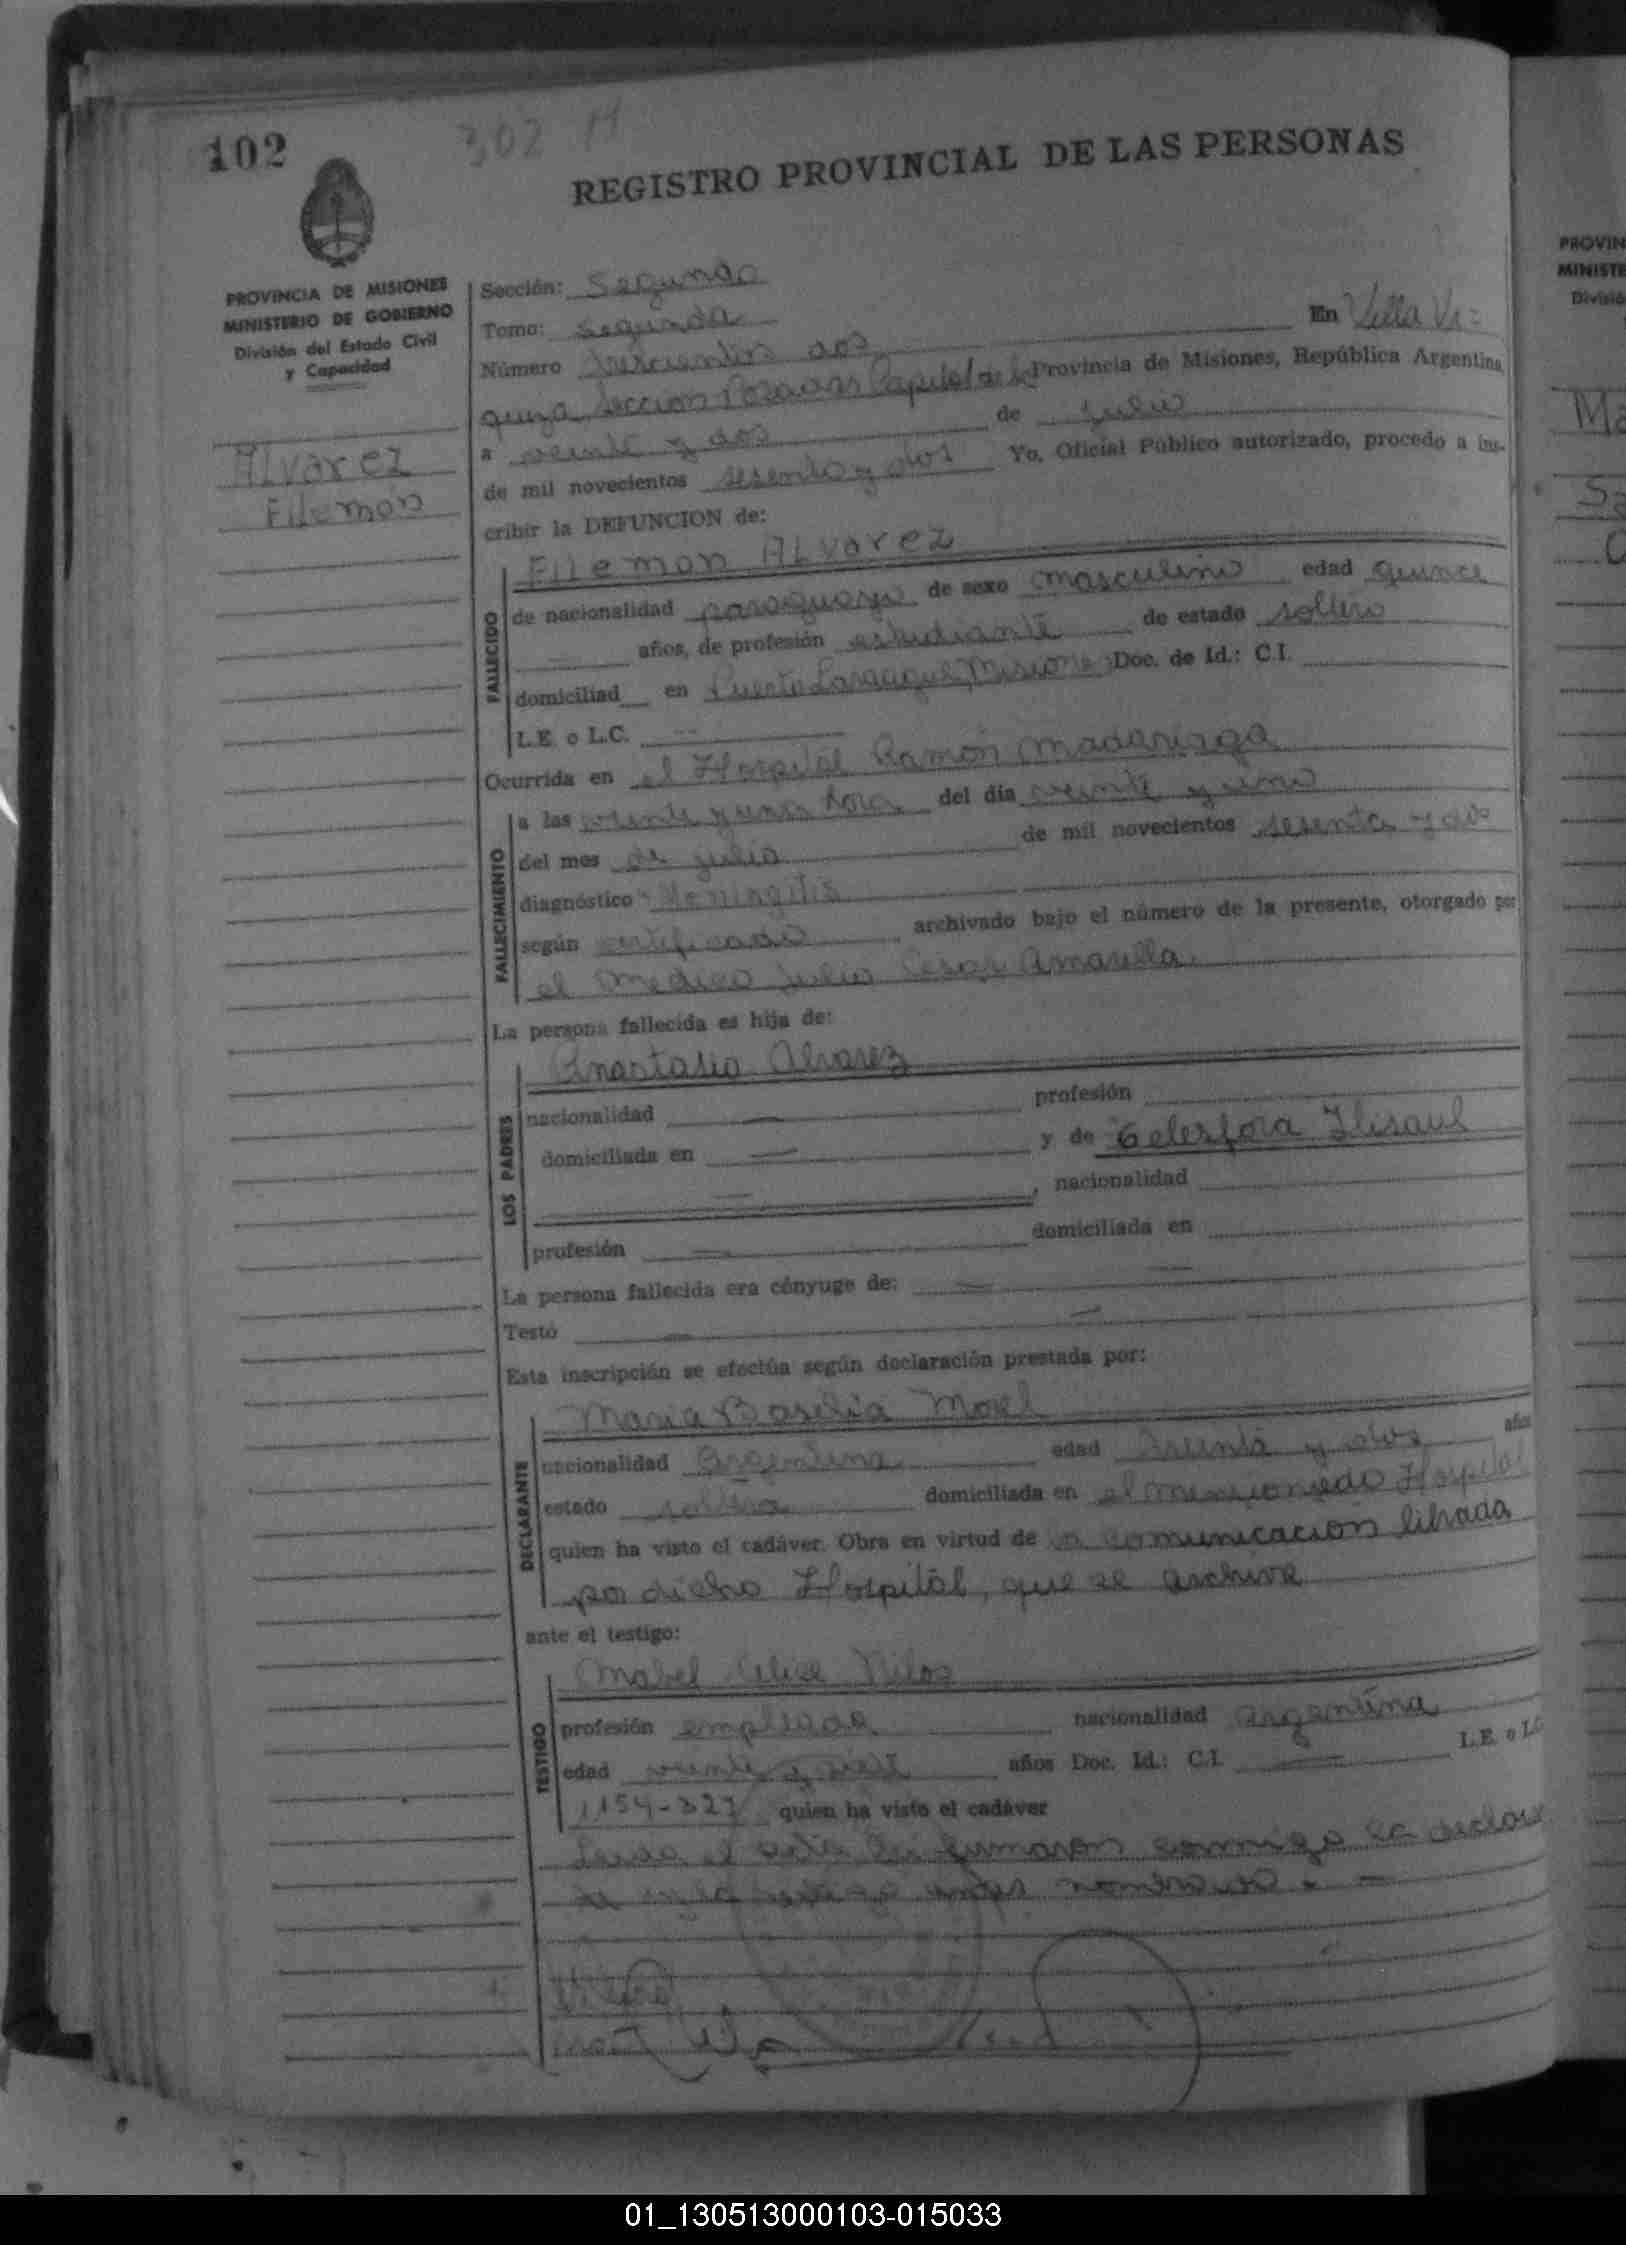 102
302 M
REGISTRO PROVINCIAL DE LAS PERSONAS
PROVINCIA DE MISIONES
MINISTERIO DE GOBIERNO
División del Estado Civil
y Capacidad
Alvarez
Filemon
Sección: Segunda
Tomo: Segunda
Número trescientos dos En Villa Ur=
quiza Sección Posadas Capital de la Provincia de Misiones, República Argentina,
a veinte y dos de julio
de mil novecientos sesenta y dos Yo, Oficial Público autorizado, procedo a ins-
cribir la DEFUNCION de:
Filemon Alvarez
FALLECIDO
de nacionalidad paraguaya de sexo masculino edad quince
años, de profesión estudiante de estado soltero
domiciliad en Puerto Misiones Doc. de Id.: C.I.
L.E. o L.C. --
Ocurrida en el Hospital Ramón Madariaga
FALLECIMIENTO
a las veinte y una hora del día veinte y uno
del mes de julio de mil novecientos sesenta y dos
diagnóstico Meningitis
según certificado archivado bajo el número de la presente, otorgado por
el medico Julio Cesar Amarilla.
La persona fallecida es hija de:
Anastasio Alvarez
LOS PADRES
nacionalidad — profesión
domiciliada en — y de Celesfora
— , nacionalidad
profesión — domiciliada en
La persona fallecida era cónyuge de: — —
Testó — —
Esta inscripción se efectúa según declaración prestada por:
Maria Basilia Morel
DECLARANTE
nacionalidad argentina edad treinta y dos años
estado soltera domiciliada en el mencionado Hospital
quien ha visto el cadáver. Obra en virtud de la comunicación librada
por dicho Hospital, que se archiva
ante el testigo:
Mabel
TESTIGO
profesión empleada nacionalidad argentina
edad veinte y siete años Doc. Id.: C.I. — L.E. o L.C.
1154-327 quien ha visto el cadáver
Leida el acta la firmaron conmigo la declaran
te y la testigo antes nombrada. —
PROVIN
MINISTE
Divisió
01_130513000103-015033